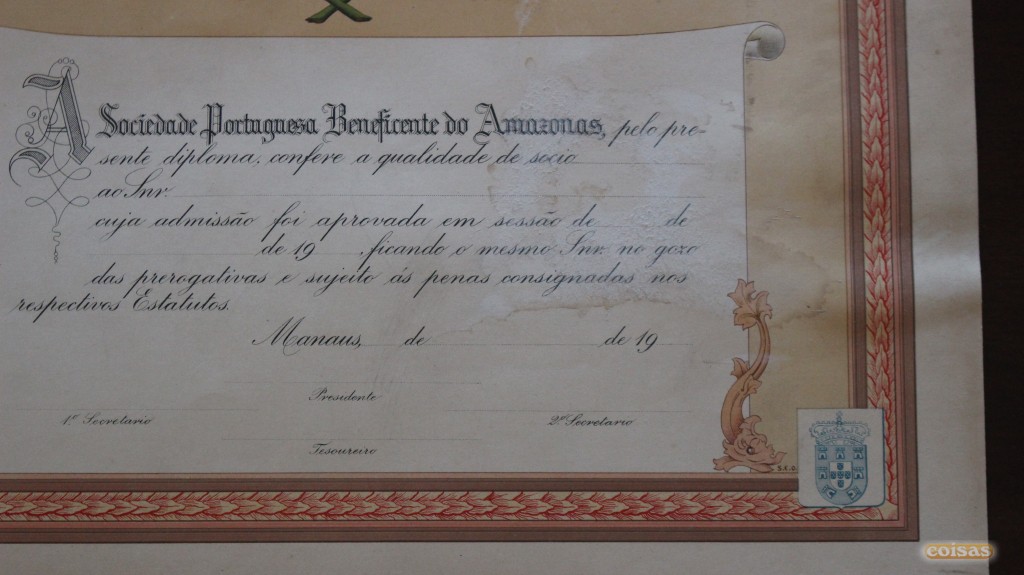 A Sociedade Portuguesa Beneficente do Amazonas, pelo pre-
sente diploma, confere a qualidade de socio
ao Snr.
cuja admissão foi aprovada em sessão de de
de 19 , ficando o mesmo Snr. no gozo
das prerogativas e sujeito ás penas consignadas nos
respectivos Estatutos.
Manaus, de de 19
Presidente
1º Secretario 2º Secretario
Tesoureiro
coisas